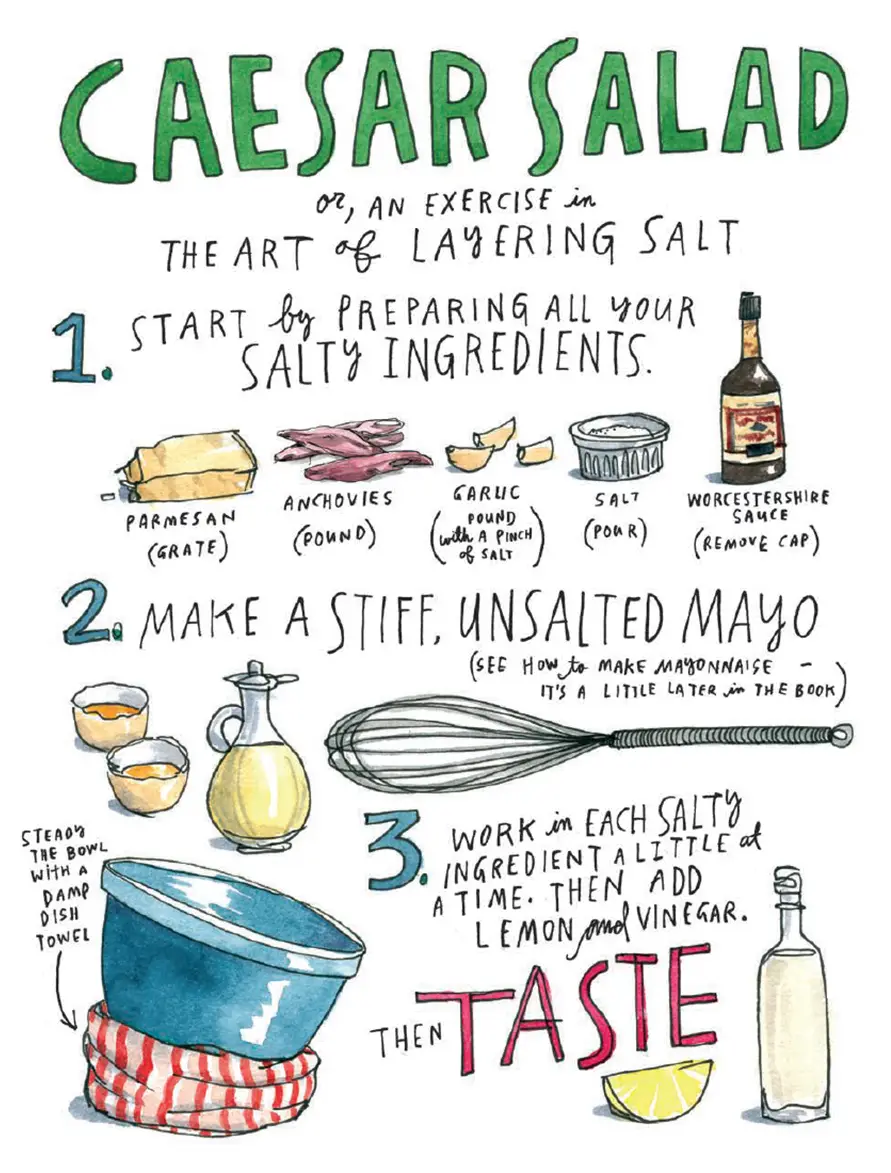 CAESAR SALAD
or, AN EXERCISE in
THE ART of LAYERING SALT
1. START by PREPARING ALL YOUR
SALTY INGREDIENTS.
PARMESAN
(GRATE)
ANCHOVIES
(POUND)
GARLIC
(POUND
with A PINCH
of SALT)
SALT
(POUR)
WORCESTERSHIRE
SAUCE
(REMOVE CAP)
2. MAKE A STIFF, UNSALTED MAYO
(SEE HOW to MAKE MAYONNAISE –
IT'S A LITTLE LATER in THE BOOK)
STEADY
THE BOWL
WITH A
DAMP
DISH
TOWEL
3. WORK in EACH SALTY
INGREDIENT A LITTLE at
A TIME. THEN ADD
LEMON and VINEGAR.
THEN TASTE